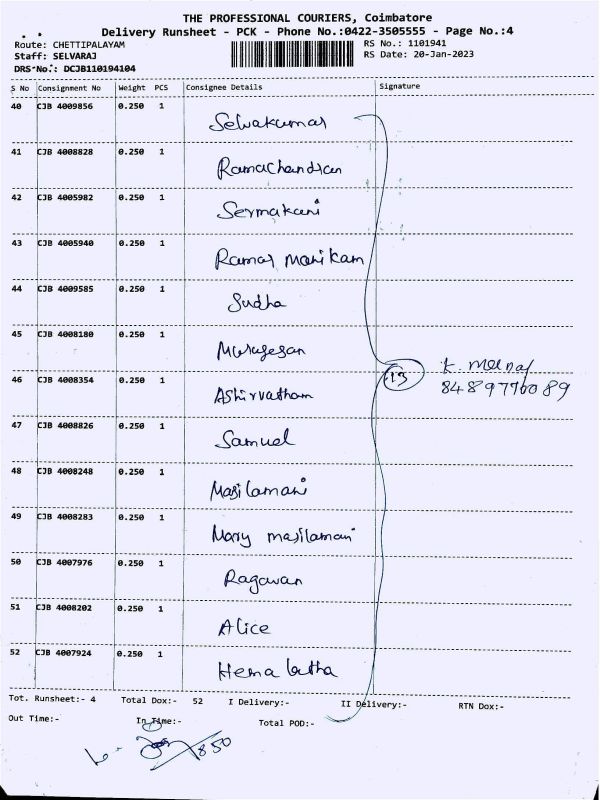 THE PROFESSIONAL COURIERS, Coimbatore
Delivery Runsheet - PCK - Phone No.:0422-3505555 - Page No.:4
Route: CHETTIPALAYAM RS No.: 1101941
Staff: SELVARAJ RS Date: 20-Jan-2023
DRS No.: DCJB110194104
S No Consignment No Weight PCS Consignee Details Signature
40 CJB 4009856 0.250 1 Selvakumar
41 CJB 4008828 0.250 1 Ramachandran
42 CJB 4005982 0.250 1 Sermakani
43 CJB 4005940 0.250 1 Ramar Manikam
44 CJB 4009585 0.250 1 Sudha
45 CJB 4008180 0.250 1 Murugesan
13 K.
46 CJB 4008354 0.250 1 Ashirvatham 8489770089
47 CJB 4008826 0.250 1 Samuel
48 CJB 4008248 0.250 1 Masilamani
49 CJB 4008283 0.250 1 Mary masilamani
50 CJB 4007976 0.250 1 Ragavan
51 CJB 4008202 0.250 1 Alice
52 CJB 4007924 0.250 1 Hema latha
Tot. Runsheet:- 4 Total Dox:- 52 I Delivery:- II Delivery:- RTN Dox:-
Out Time:- In Time:- Total POD:-
850